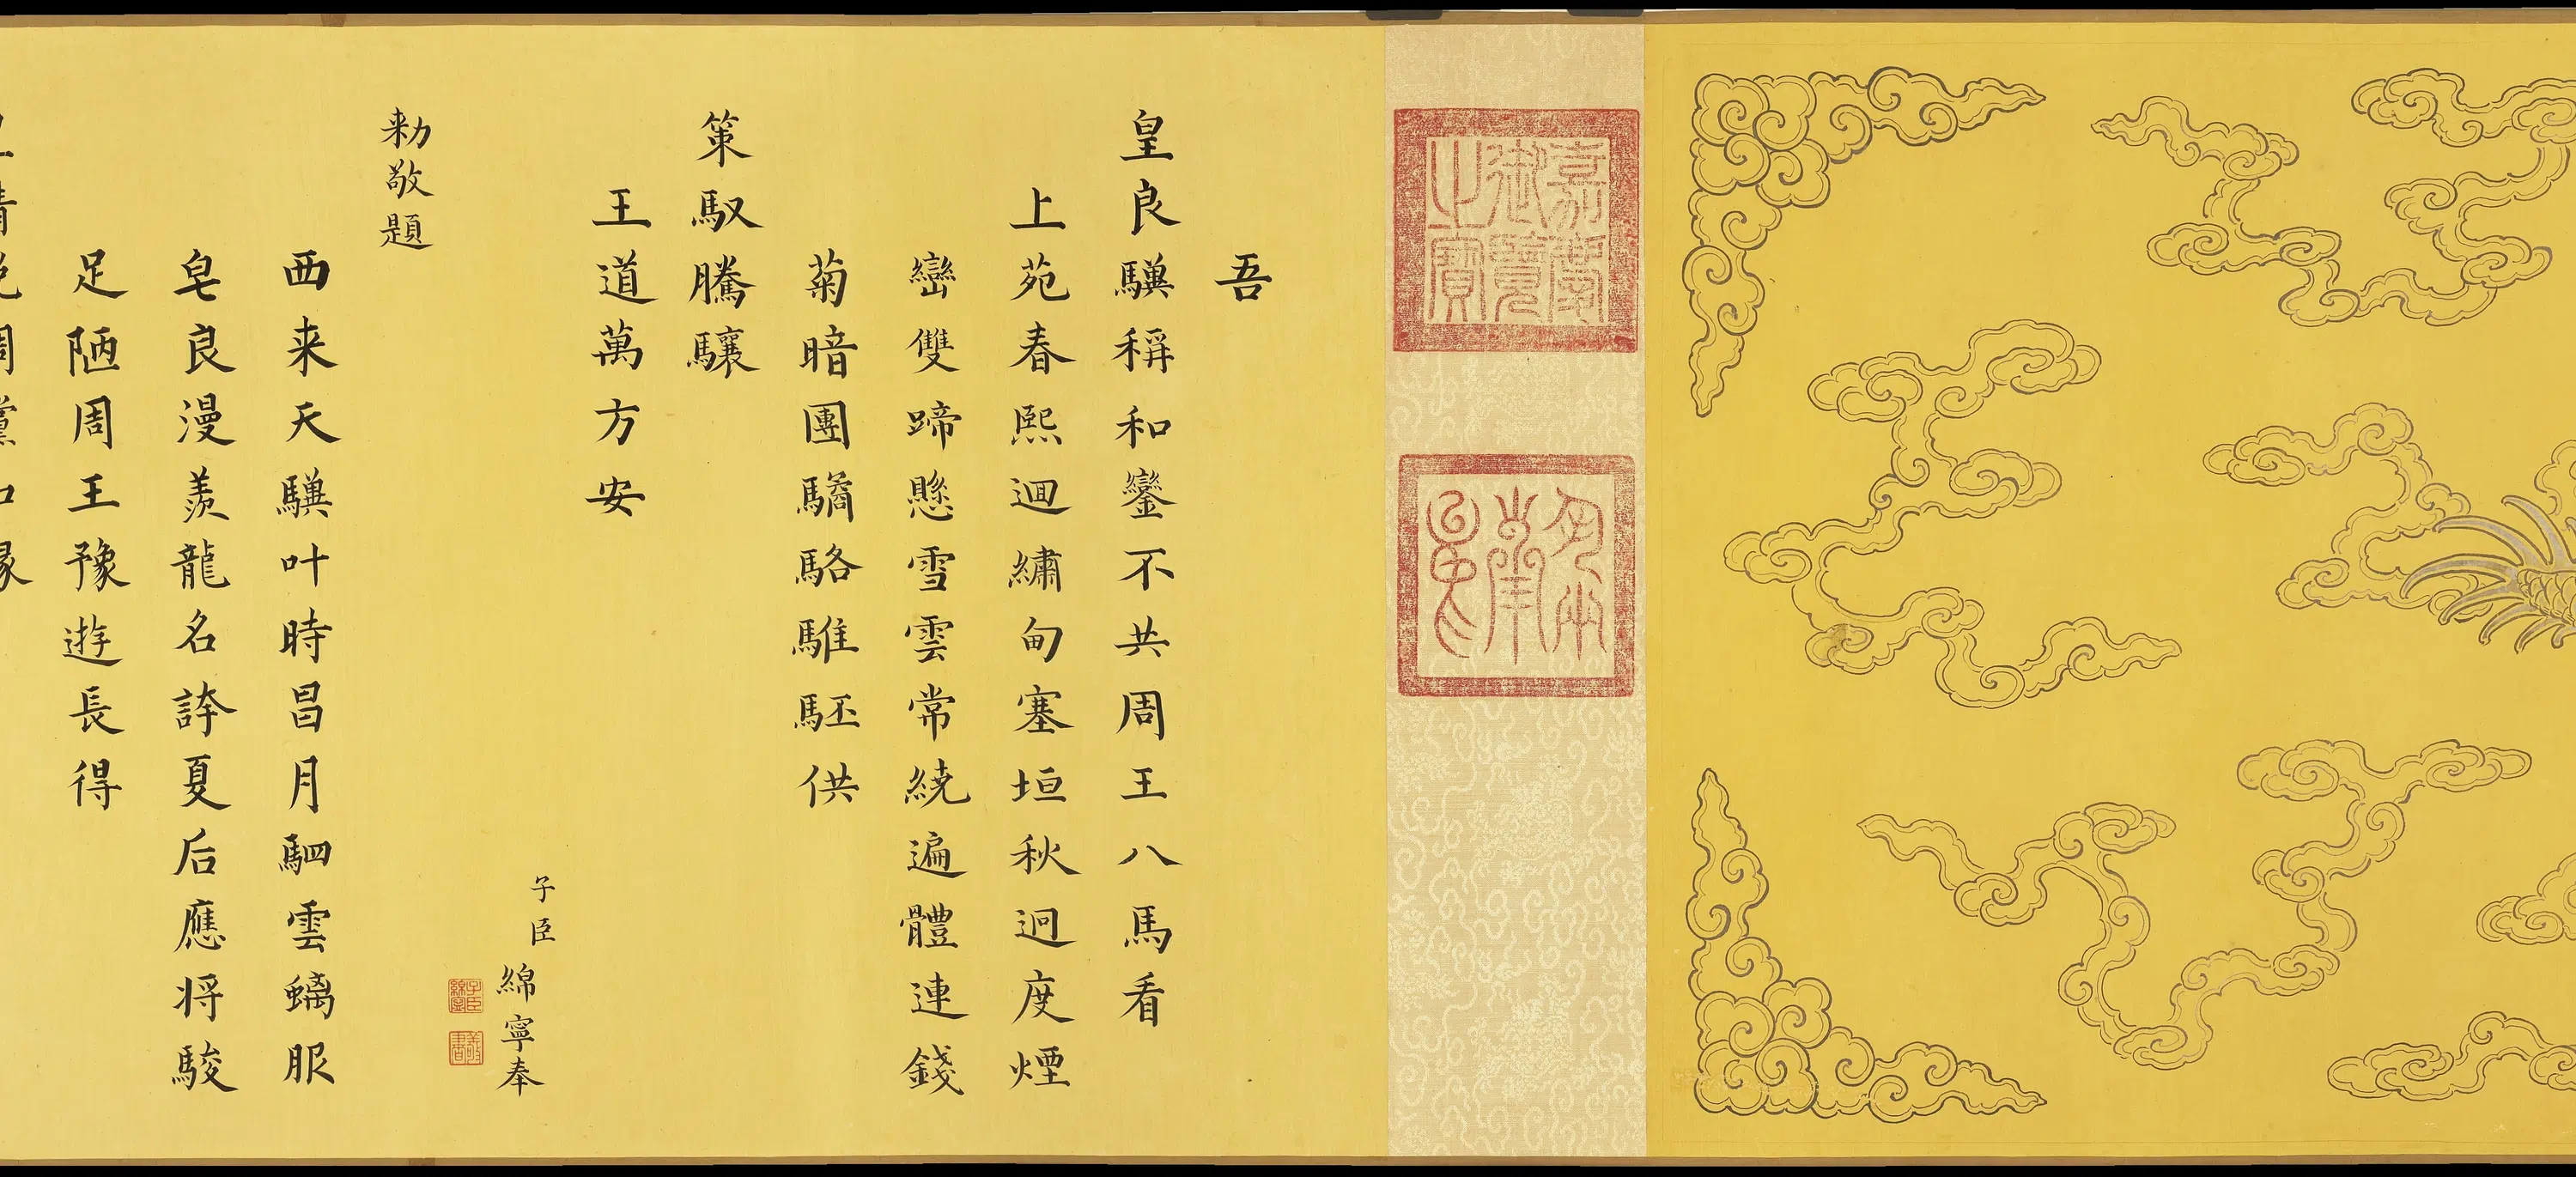 嘉慶御覽之寶
吾
皇良驥稱和鑾不共周王八馬看
上苑春熙迴繡甸塞垣秋迥度煙
巒雙蹄懸雪雲常繞遍體連錢
菊暗團驈駱騅駓供
策馭騰驤
王道萬方安
子臣
綿寧奉
勑敬題
子臣綿寧
西来天驥叶時昌月駟雲螭服
皂良漫羨龍名誇夏后應将駿
足陋周王豫遊長得